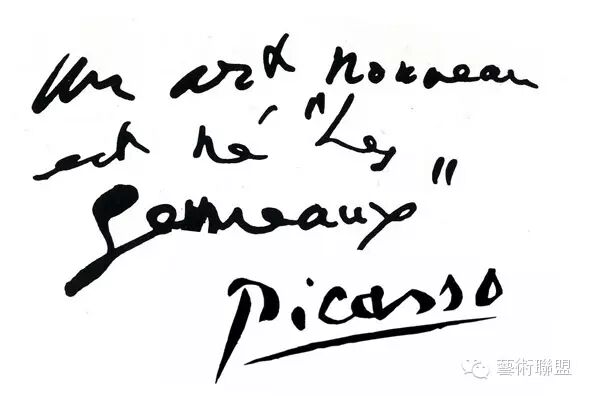 Un art nouveau
est né "Les
Gemmeaux"
Picasso
藝術聯盟